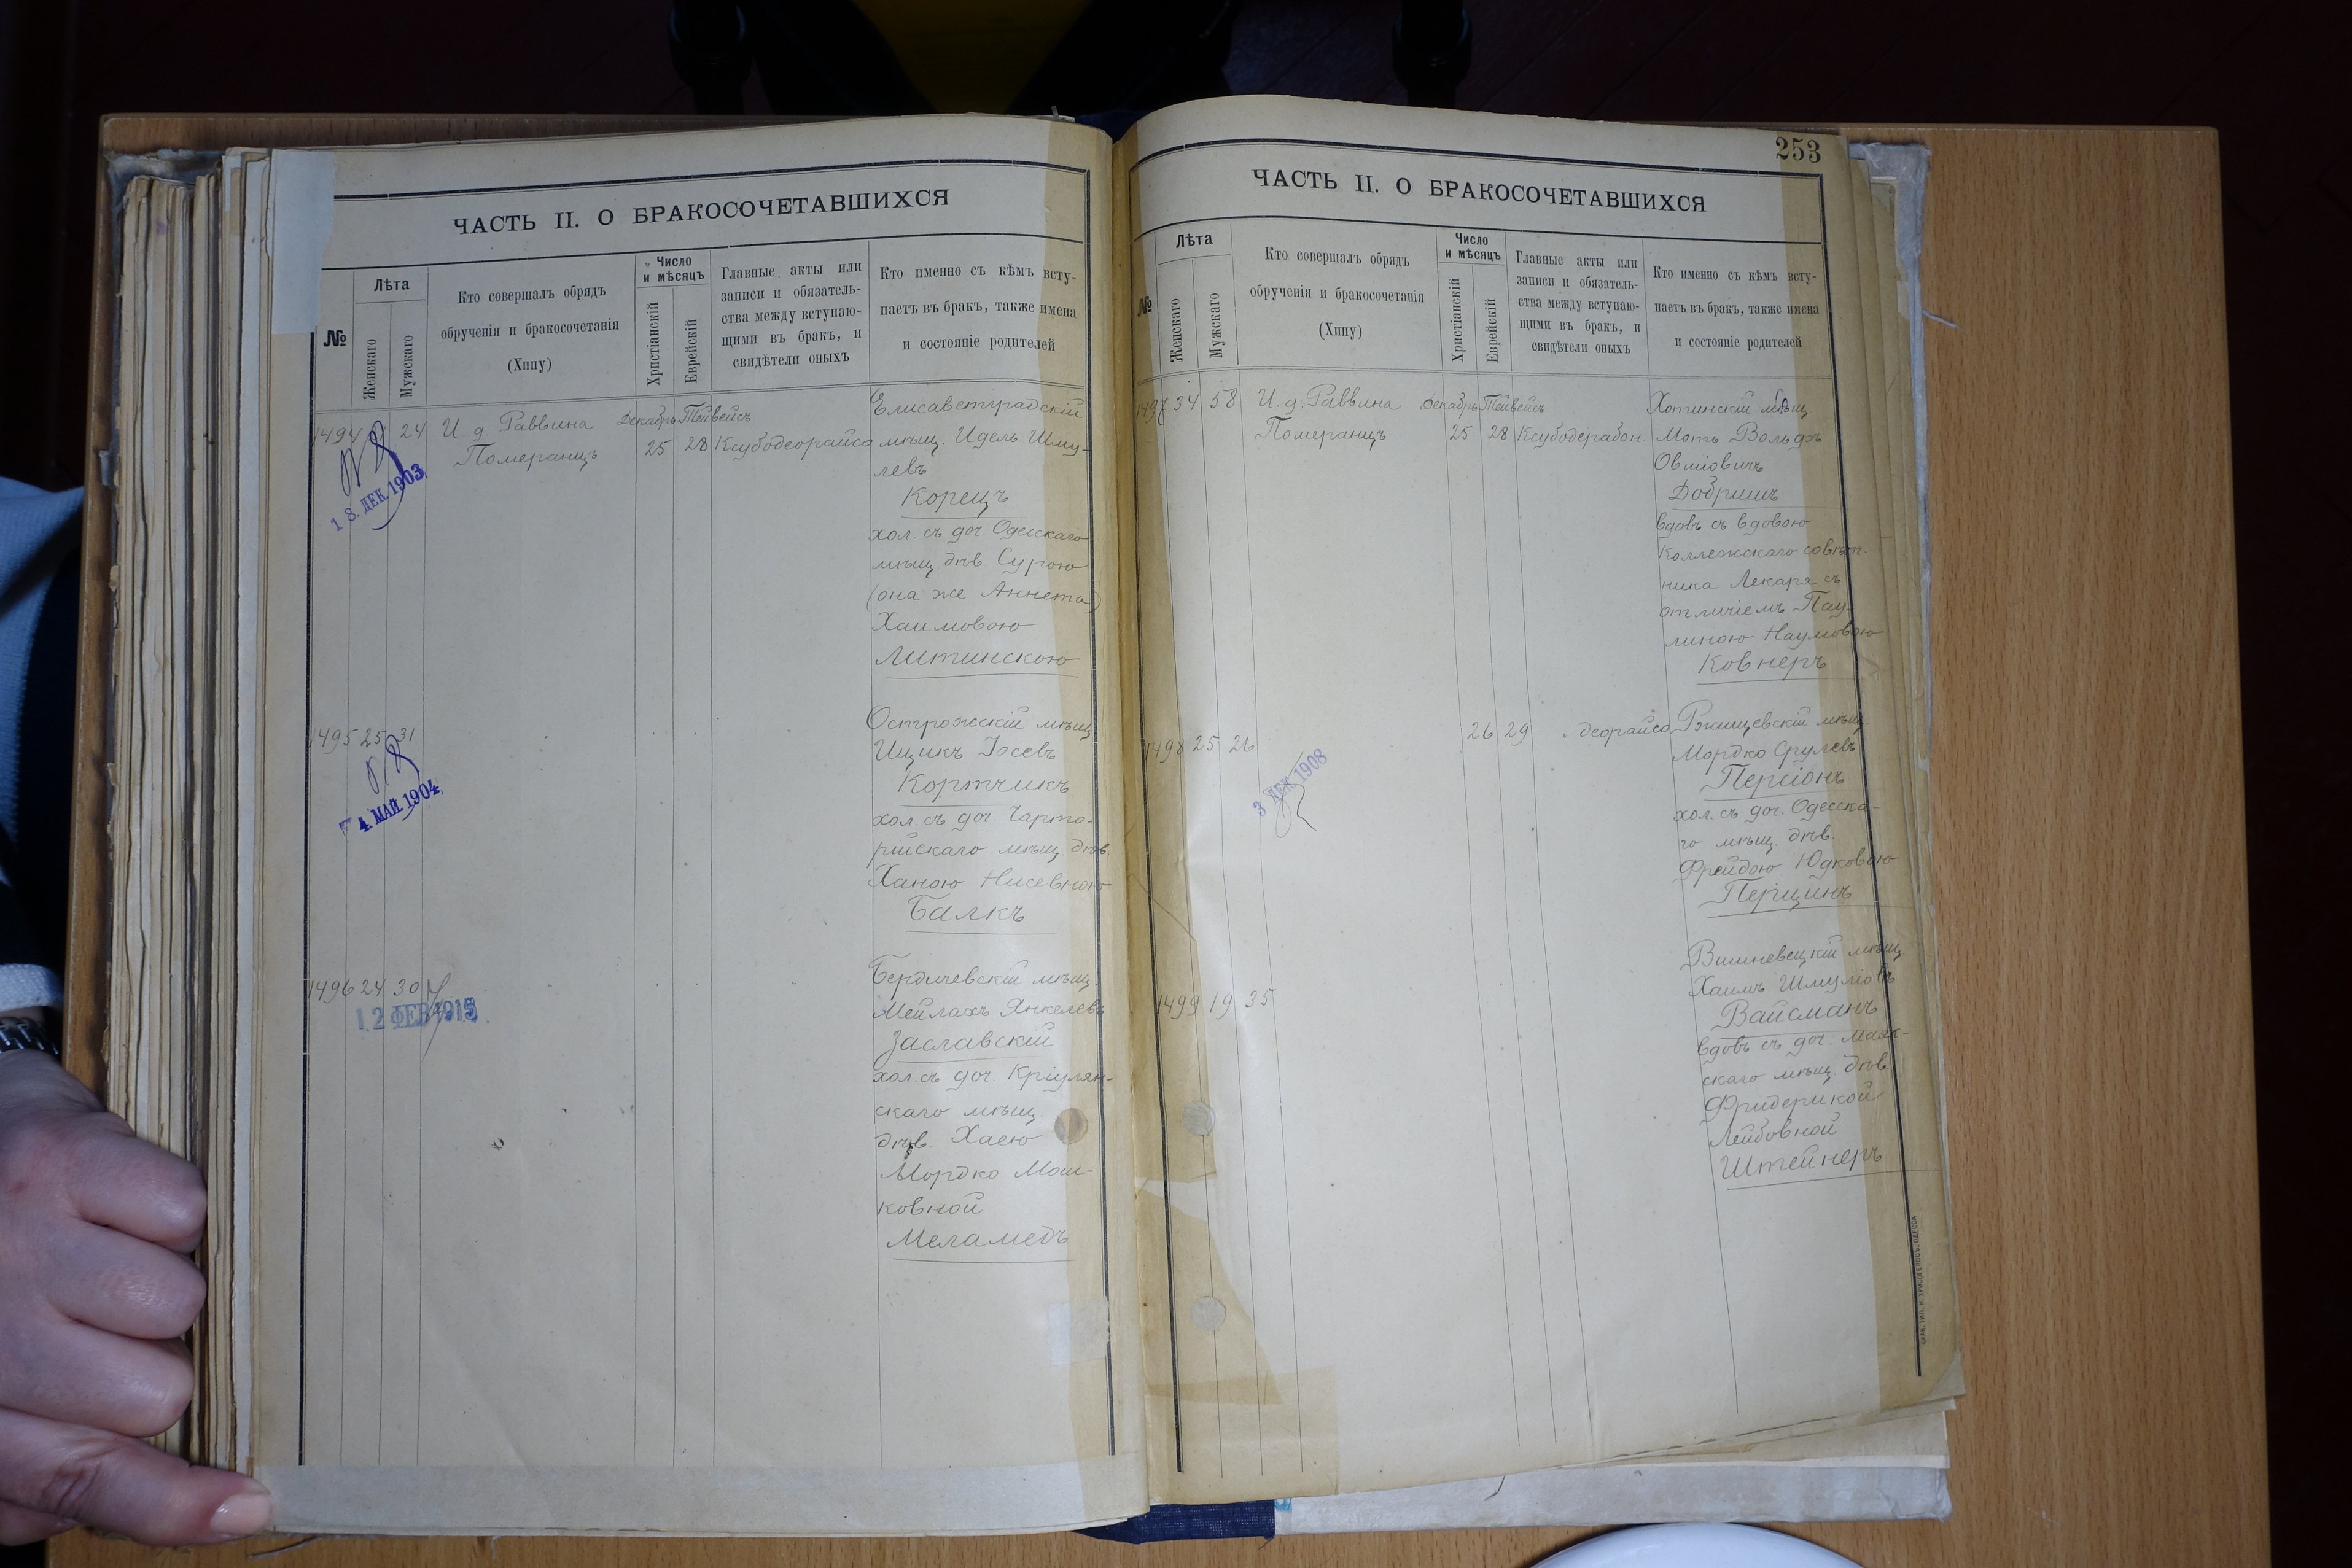 ЧАСТЬ II. О БРАКОСОЧЕТАВШИХСЯ
№
Лѣта
Женскаго
Мужскаго
Кто совершалъ обрядъ
обрученія и бракосочетанія
(Хипу)
Число
и мѣсяцъ
Христіанскій
Еврейскій
Главные акты или
записи и обязатель-
ства между вступаю-
щими въ бракъ, и
свидѣтели оныхъ
Кто именно съ кѣмъ всту-
паетъ въ бракъ, также имена
и состояніе родителей
1494 24
18. ДЕК. 1903
И. д. Раввина
Померанцъ
Декабрь Тейвейсъ
25 28 Ксубодеорайсо
Елисаветградскій
мѣщ. Идель Шму-
левъ
Корецъ
хол. съ доч Одесскаго
мѣщ дѣв. Сурою
(она же Аннета)
Хаимовою
Литинскою
1495 25 31
4. МАЙ. 1904
Острожскій мѣщ
Ицикъ Іосевъ
Кортчикъ
хол. съ доч Чарто-
рійскаго мѣщ дѣв.
Ханою Нисевною
Балкъ
1496 24 30
12 ФЕВ 1915
Бердичевскій мѣщ.
Мейлахъ Янкелевъ
Заславскій
хол. съ доч. Кріулян-
скаго мѣщ
дѣв. Хаею
Мордко Мош-
ковной
Меламедъ
253
ЧАСТЬ II. О БРАКОСОЧЕТАВШИХСЯ
№
Лѣта
Женскаго
Мужскаго
Кто совершалъ обрядъ
обрученія и бракосочетанія
(Хипу)
Число
и мѣсяцъ
Христіанскій
Еврейскій
Главные акты или
записи и обязатель-
ства между вступаю-
щими въ бракъ, и
свидѣтели оныхъ
Кто именно съ кѣмъ всту-
паетъ въ бракъ, также имена
и состояніе родителей
1497 34 58
И. д. Раввина
Померанцъ
Декабрь Тейвейсъ
25 28 Ксубодерабон.
Хотинскій мѣщ
Моть Вольфъ
Овшіовичъ
Добришъ
вдовъ съ вдовою
Коллежскаго совѣт-
ника Лекаря съ
отличіемъ Пау-
линою Наумовою
Ковнеръ
1498 25 26
3 ДЕК 1908
26 29 деорайсо
Ржищевскій мѣщ.
Мордко Срулевъ
Персіонъ
хол. съ доч. Одесска-
го мѣщ. дѣв.
Фрейдою Юдковою
Перцинъ
1499 19 35
Вишневецкій мѣщ
Хаимъ Шмуліовъ
Вайсманъ
вдовъ съ доч. Маяк-
скаго мѣщ. дѣв.
Фридерикой
Лейбовной
Штейнеръ